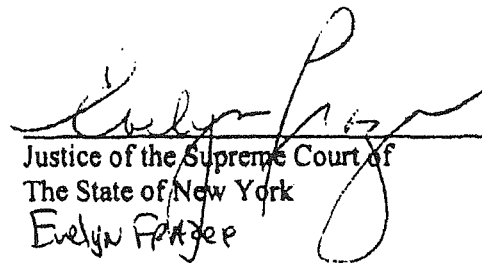 Evelyn Frazer
Justice of the Supreme Court of
The State of New York
Evelyn Frazer